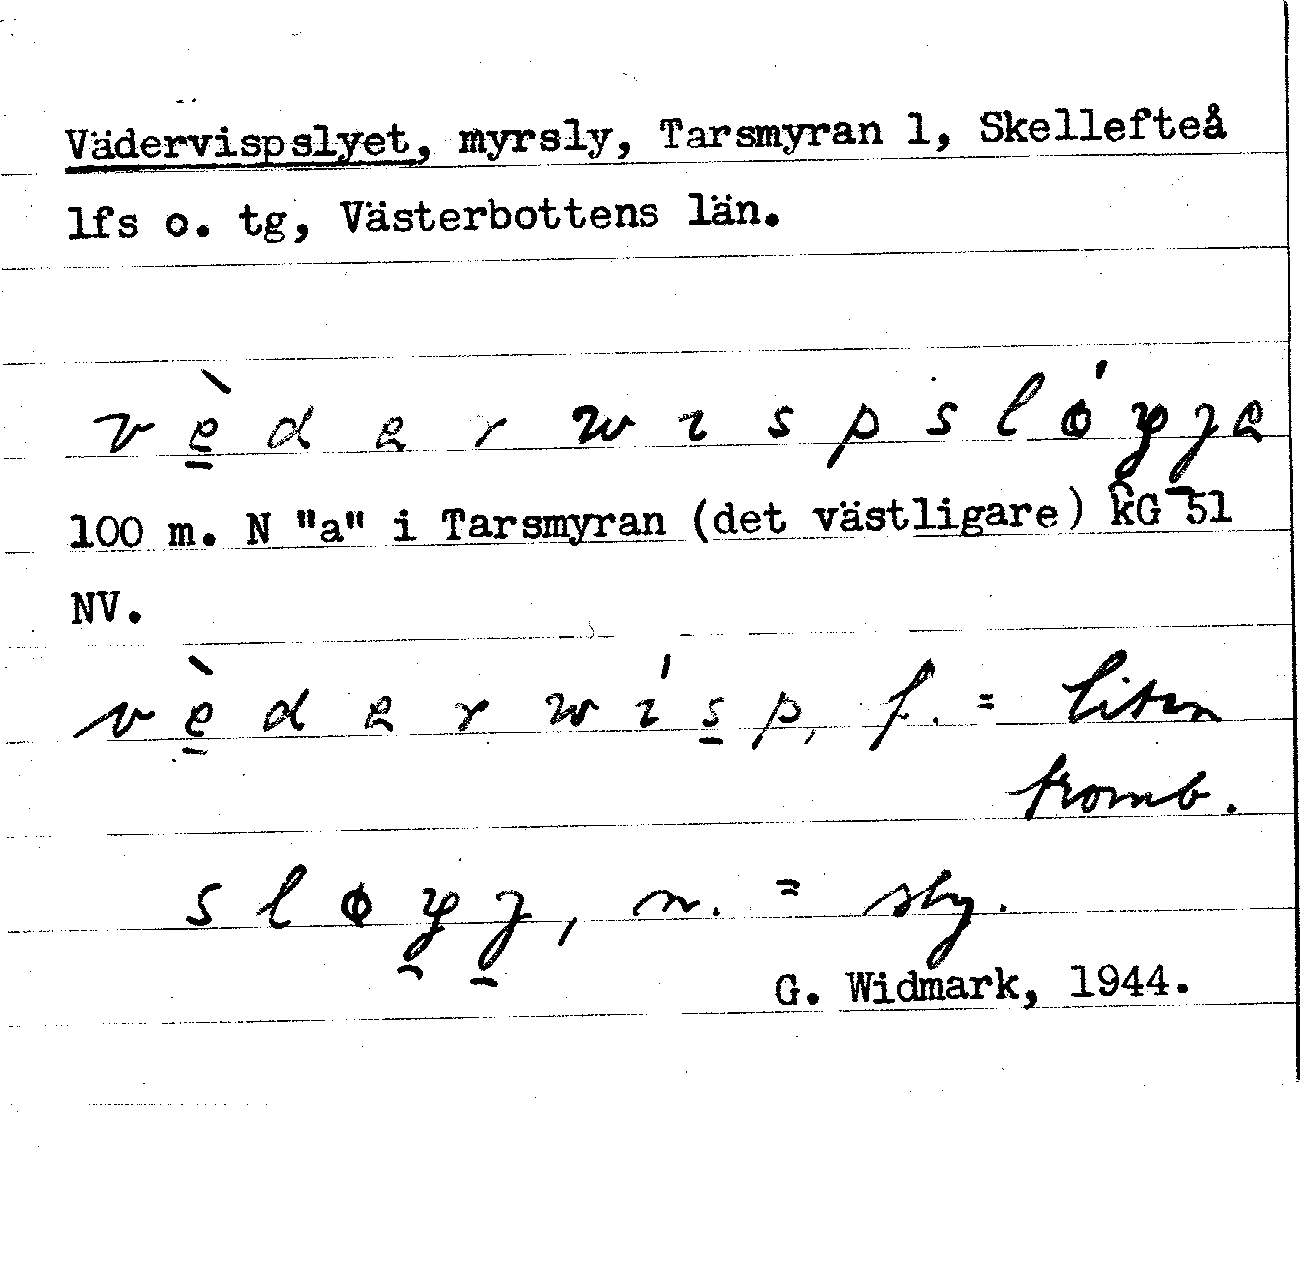 Vädervispslyet, myrsly, Tarsmyran 1, Skellefteå
lfs o. tg, Västerbottens län.
vèdərwıspsløʹyjə
100 m. N "a" i Tarsmyran (det västligare) kG 51
NV.
vèdərwıʹsp, f. = liten
tromb.
sløyj, n. = sly.
G. Widmark, 1944.